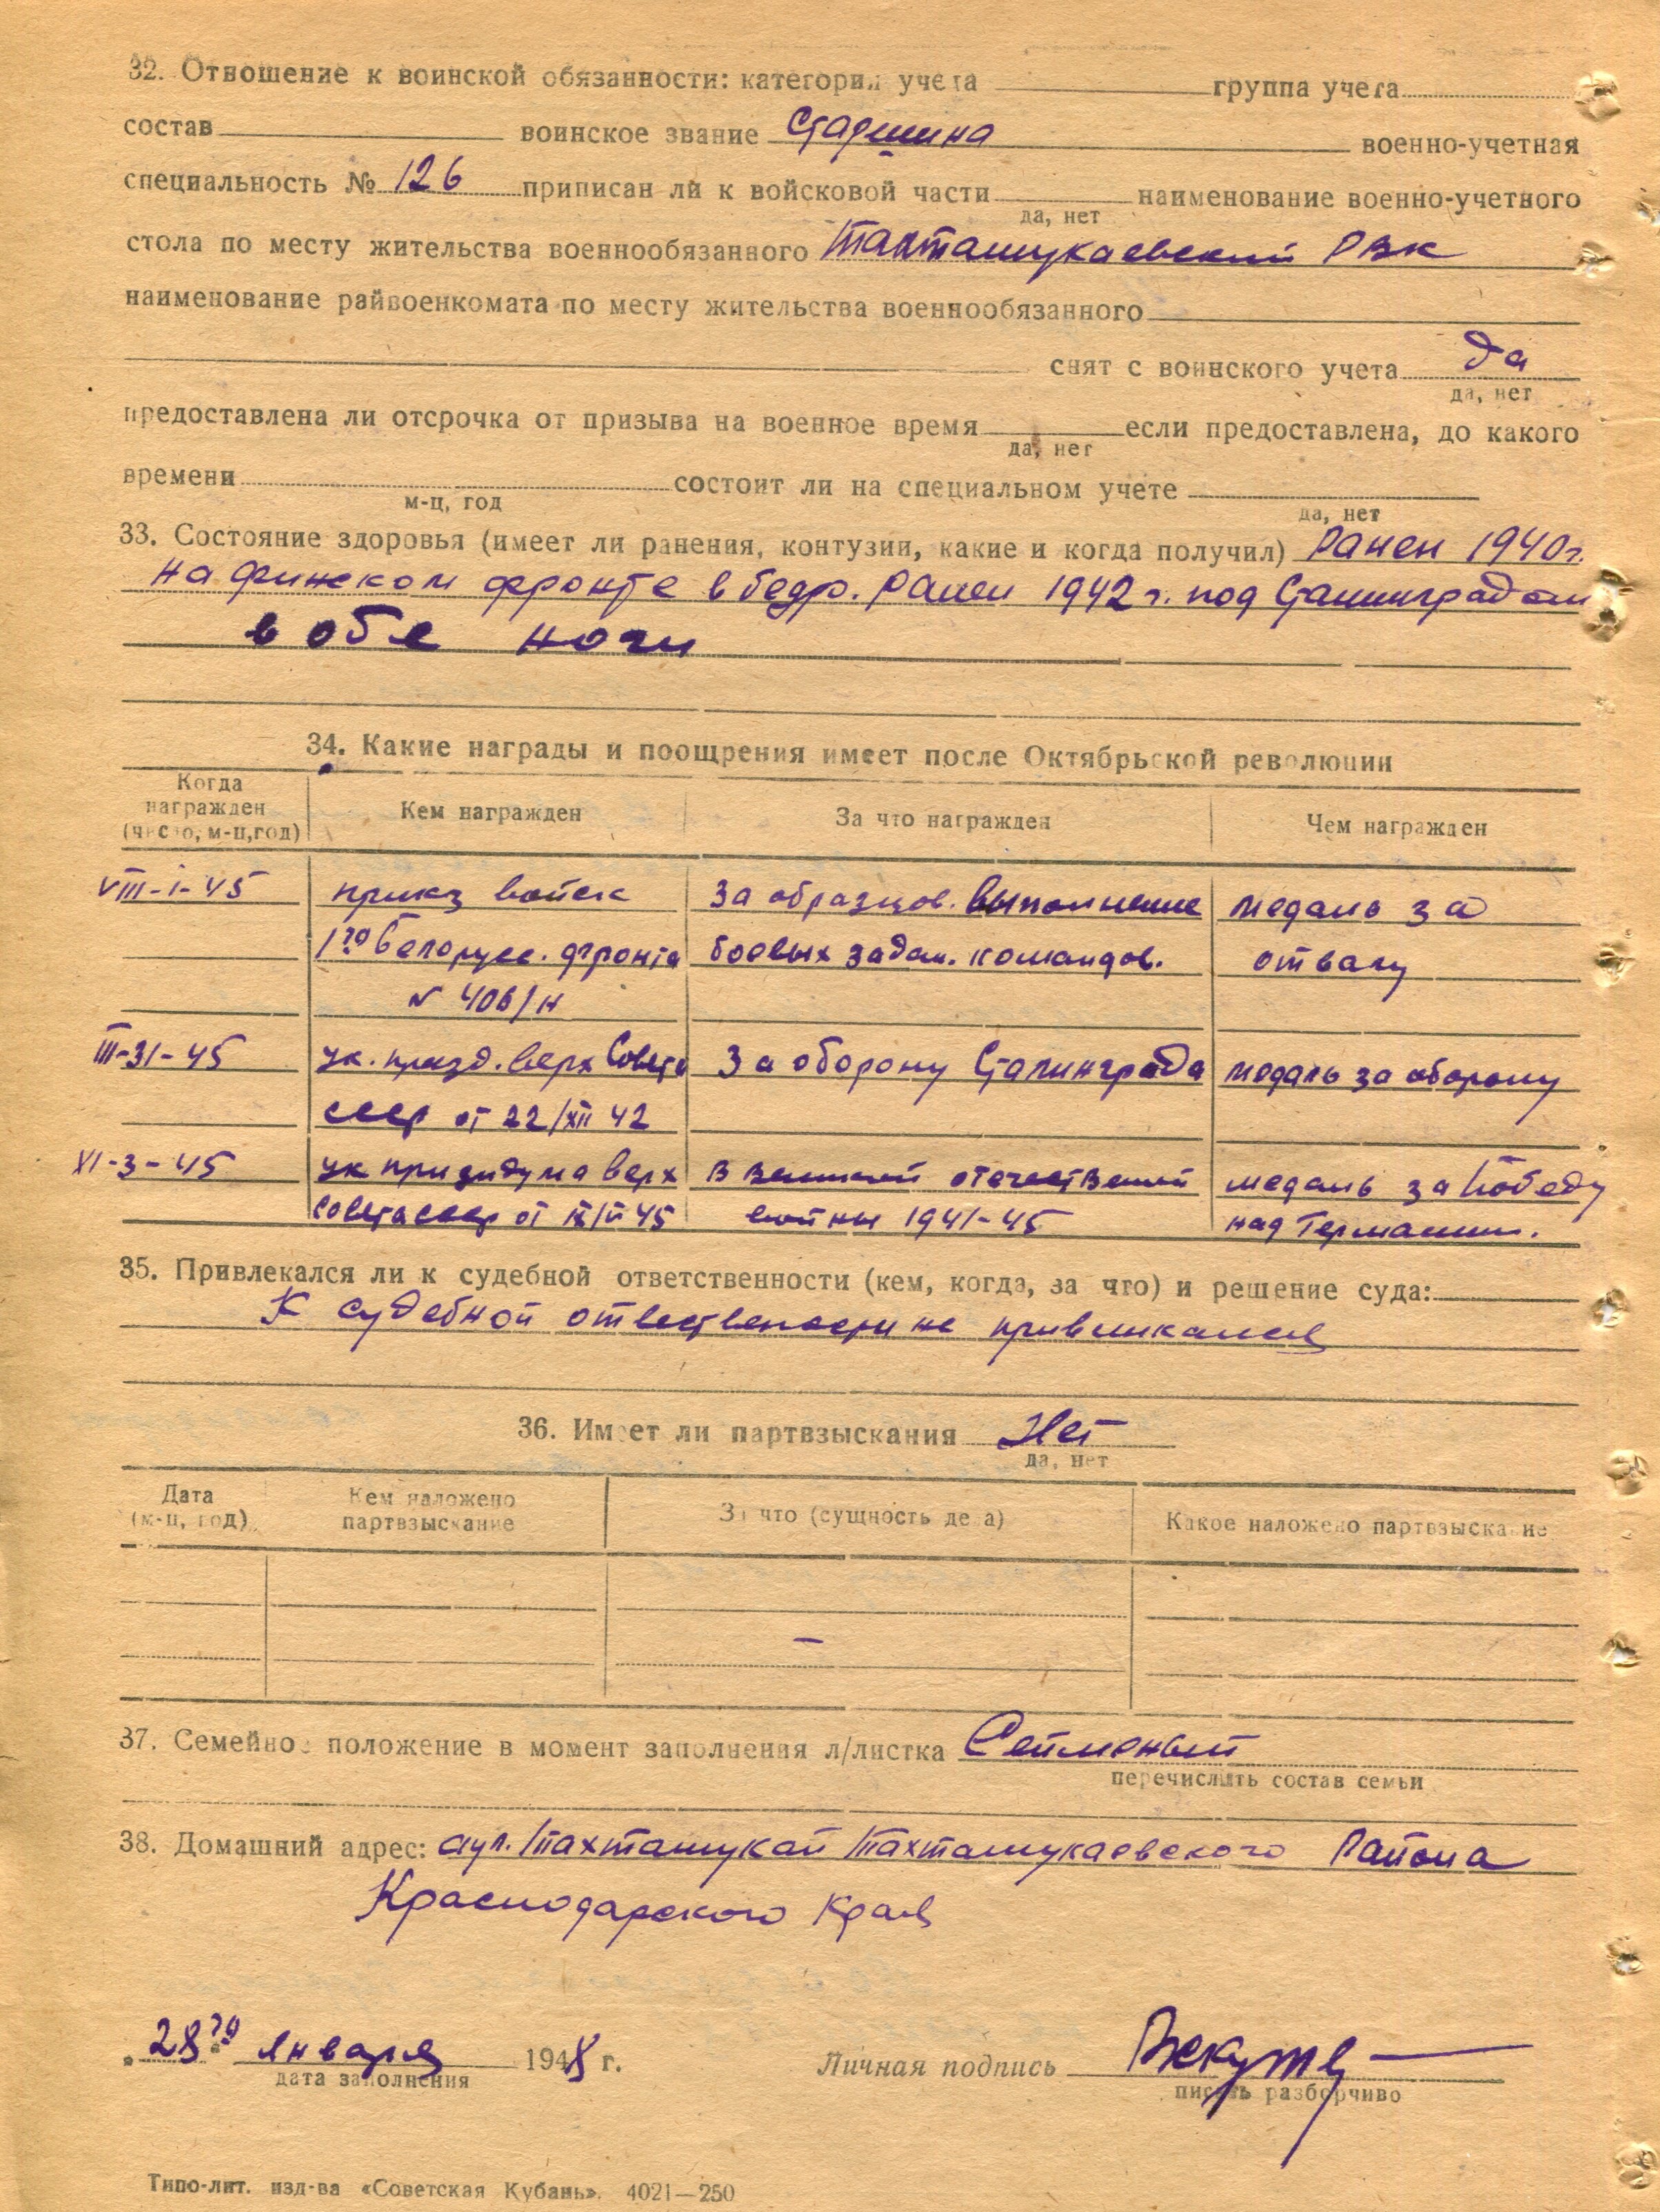 32. Отношение к воинской обязанности: категория учета группа учета
состав воинское звание Старшина военно-учетная
специальность № 126 приписан ли к войсковой части наименование военно-учетного
да, нет
стола по месту жительства военнообязанного Тахтамукаевский РВК
наименование райвоенкомата по месту жительства военнообязанного
снят с воинского учета да
да, нет
предоставлена ли отсрочка от призыва на военное время если предоставлена, до какого
да, нет
времени состоит ли на специальном учете
м-ц, год да, нет
33. Состояние здоровья (имеет ли ранения, контузии, какие и когда получил) Ранен 1940 г.
на финском фронте в бедр. Ранен 1942 г. под Сталинградом
в обе ноги
34. Какие награды и поощрения имеет после Октябрьской революции
Когда
награжден
(число, м-ц, год)
Кем награжден За что награжден Чем награжден
VIII-I-45 приказ войск За образцов. выполнение медаль за
1го Белорусс. фронта боевых задан. командов. отвагу
№ 406/н
III-31-45 Ук. през. Верх Совета За оборону Сталинграда медаль за оборону
СССР от 22/XII 42
XI-3-45 Ук призидума Верх В Великой отечественой медаль за Победу
Совета СССР от войны 1941-45 над Германии.
35. Привлекался ли к судебной ответственности (кем, когда, за что) и решение суда:
К судебной не привликался
36. Имеет ли партвзыскания Нет
да, нет
Дата
(м-ц, год)
Кем наложено
партвзыскание
За что (сущность дела) Какое наложено партвзыскание
–
37. Семейное положение в момент заполнения л/листка
перечислить состав семьи
38. Домашний адрес: аул. Тахтамукай Тахтамукаевского Района
Краснодарского Края
28го января 1948 г. Личная подпись
дата заполнения писать разборчиво
Типо-лит. изд-ва «Советская Кубань». 4021—250